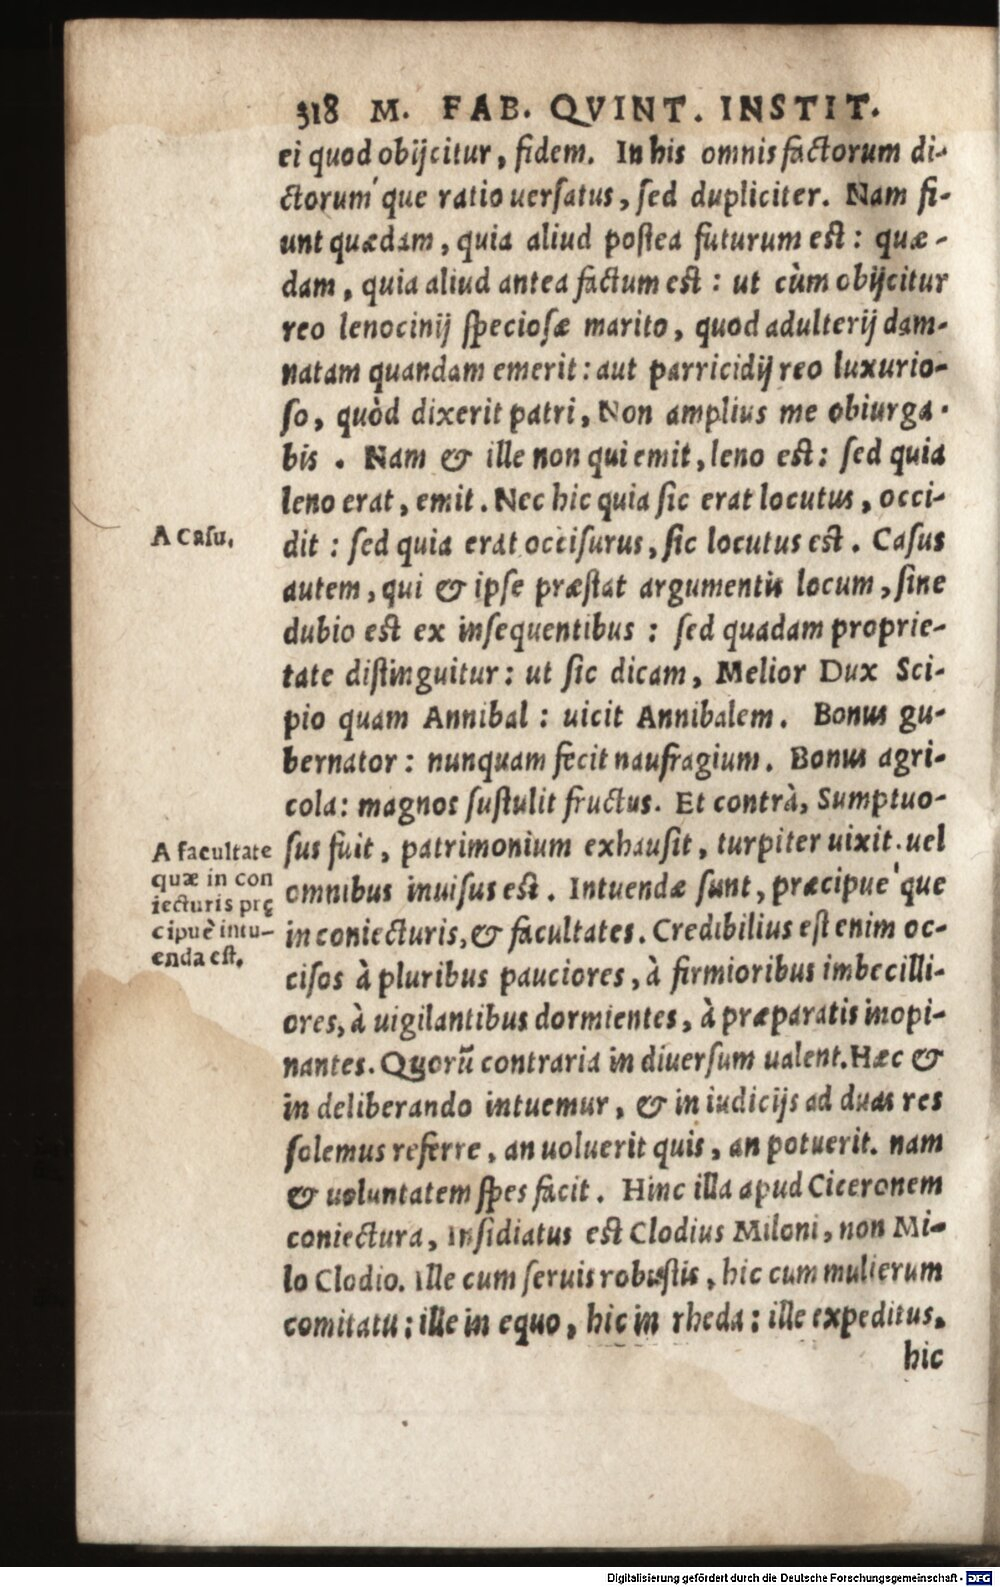 318 M. FAB. QVINT. INSTIT.
ei quod obijcitur, fidem. In his omnis factorum di-
ctorum'que ratio uersatus, sed dupliciter. Nam fi-
unt quædam, quia aliud postea futurum est: quæ-
dam, quia aliud antea factum est: ut cùm obijcitur
reo lenocinij speciosæ marito, quod adulterij dam-
natam quandam emerit: aut parricidij reo luxurio-
so, quòd dixerit patri, Non amplius me obiurga-
bis. Nam & ille non qui emit, leno est: sed quia
leno erat, emit. Nec hic quia sic erat locutus, occi-
A Casu.
dit: sed quia erat occisurus, sic locutus est. Casus
autem, qui & ipse præstat argumentis locum, sine
dubio est ex insequentibus: sed quadam proprie-
tate distinguitur: ut sic dicam, Melior Dux Sci-
pio quam Annibal: uicit Annibalem. Bonus gu-
bernator: nunquam fecit naufragium. Bonus agri-
cola: magnos sustulit fructus. Et contrà, Sumptuo-
sus fuit, patrimonium exhausit, turpiter uixit. uel
omnibus inuisus est. Intuendæ sunt, præcipue'que
in coniecturis, & facultates. Credibilius est enim oc-
A facultate
quæ in con
iecturis prę
cipuè intu-
enda est.
cisos à pluribus pauciores, à firmioribus imbecilli-
ores, à uigilantibus dormientes, à præparatis inopi-
nantes. Quorũ contraria in diuersum ualent. Hæc &
in deliberando intuemur, & in iudicijs ad duas res
solemus referre, an uoluerit quis, an potuerit. nam
& uoluntatem spes facit. Hinc illa apud Ciceronem
coniectura, Insidiatus est Clodius Miloni, non Mi-
lo Clodio. Ille cum seruis robustis, hic cum mulierum
comitatu: ille in equo, hic in rheda: ille expeditus,
hic
Digitalisierung gefördert durch die Deutsche Forschungsgemeinschaft - DFG